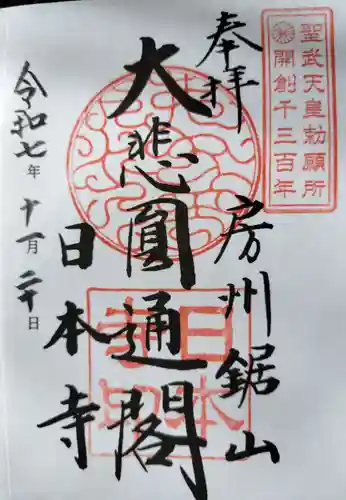 聖武天皇勅願所
開創千三百年
奉拝
房州鋸山
大悲圓通閣
日本寺
令和七年十一月二十日